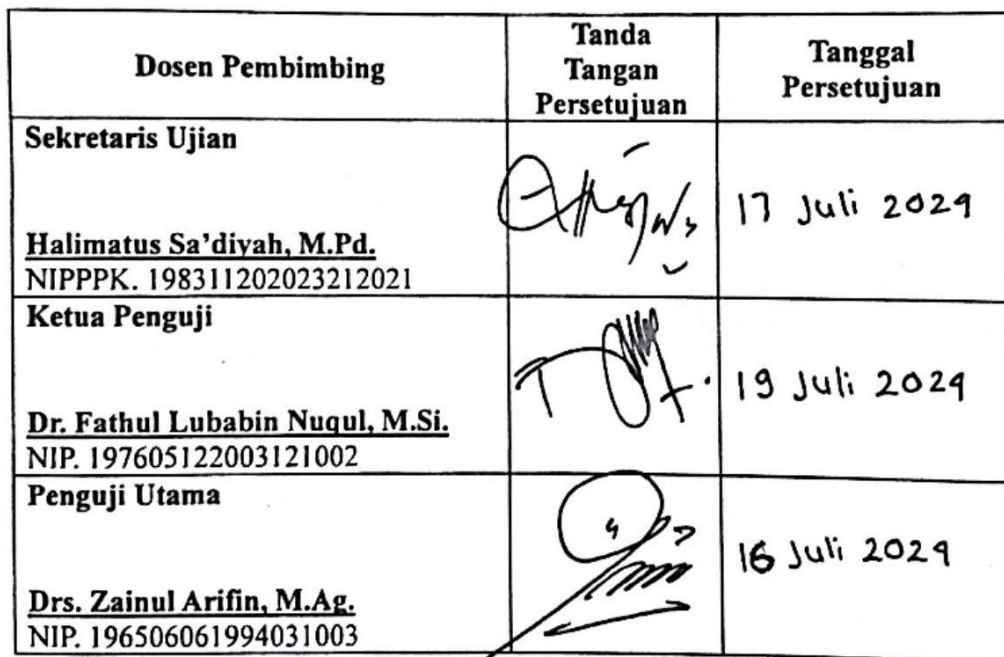 Dosen Pembimbing
Tanda
Tangan
Persetujuan
Tanggal
Persetujuan
Sekretaris Ujian
Halimatus Sa'diyah, M.Pd.
NIPPPK. 198311202023212021
17 Juli 2024
Ketua Penguji
Dr. Fathul Lubabin Nuqul, M.Si.
NIP. 197605122003121002
19 Juli 2024
Penguji Utama
Drs. Zainul Arifin, M.Ag.
NIP. 196506061994031003
16 Juli 2024